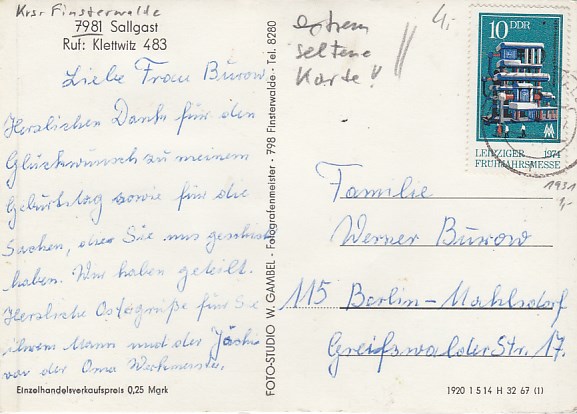 Krsr Finsterwalde
7981 Sallgast
Ruf: Klettwitz 483
Liebe Frau Burow,
Herzlichen Dank für den
Glückwunsch zu meinem
Geburtstag sowie für die
Sachen, die Sie uns geschickt
haben. Wir haben geteilt.
Herzliche Ostergrüße für Sie
ihrem Mann und der
von der Oma
Einzelhandelsverkaufspreis 0,25 Mark
FOTO-STUDIO W. GAMBEL · Fotografenmeister · 798 Finsterwalde · Tel. 8280
extrem
seltene
Karte!!
4,-
10 DDR
LEIPZIGER 1974
FRÜHJAHRSMESSE
1931
Familie
Werner Burow
115 Berlin-Mahlsdorf
Greifswalder Str. 17.
1920 1 5 14 H 32 67 (1)